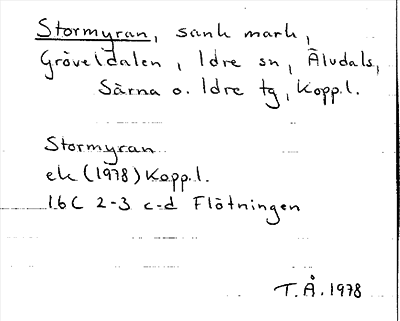 Stormyran, sank mark,
Gröveldalen, Idre sn, Älvdals,
Särna o. Idre tg, Kopp.l.
Stormyran
ek (1978) Kopp.l.
16C 2-3 c-d Flötningen
T.Å. 1978